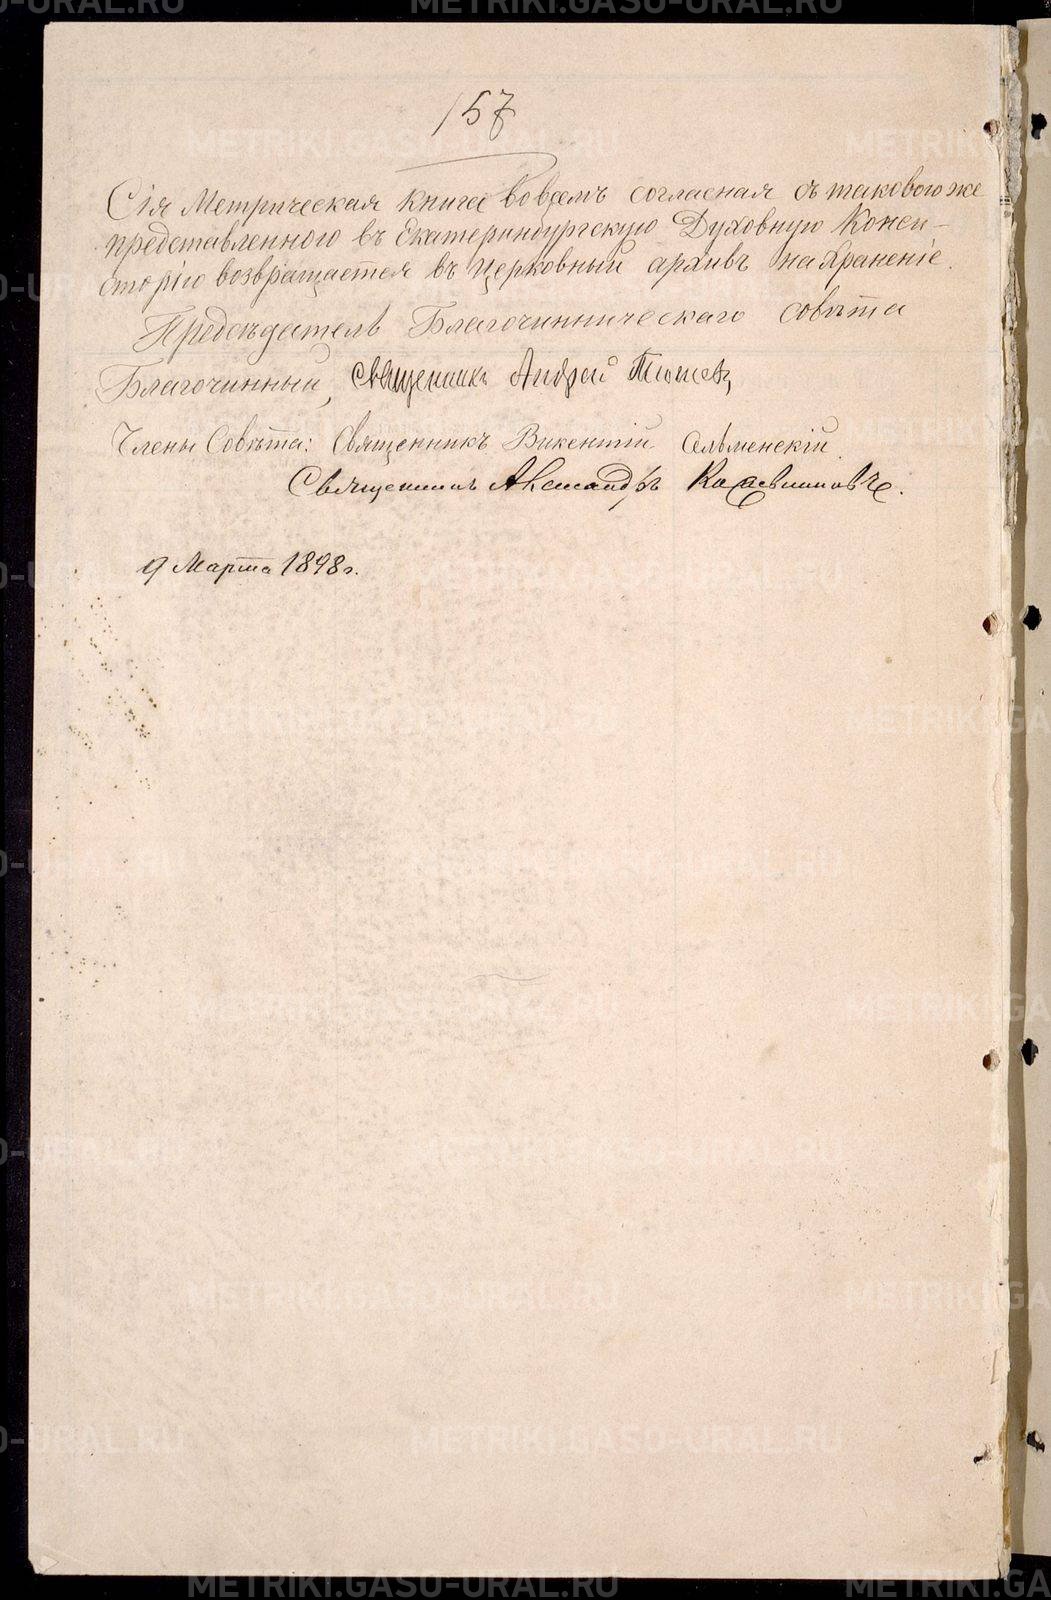 157
Сія Метрическая книга вовсемъ согласная съ таковою же
представленною въ Екатеринбургскую Духовную Конси-
сторію возвращается въ церковный архивъ на храненіе.
Предсѣдатель Благочинническаго Совѣта
Благочинный, Священникъ Андрей
Члены Совѣта: Священникъ Викентій Сельменскій
Священникъ Александръ
9 Марта 1898 г.
METRIKI.GASO-URAL.RU